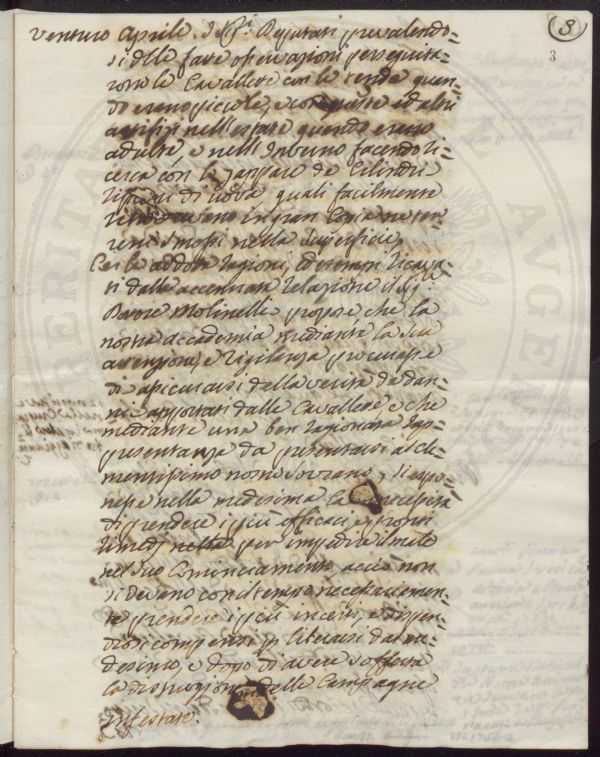 3
3
venturo Aprile. I Sig.ri Deputati prevalendo=
si delle fatte osservazioni perseguita=
rono le Cavallette con le tende quan=
do erano piccole, e con queste ed altri
artifizi nell'estate quando erano
adulte, e nell'Inverno facendo ri=
cerca con le zappare de Cilindri
ripieni di uova quali facilmente
in gran Copia ne ter=
reni smossi nella Superficie,
Per le addotte ragioni, ed esempi ricava=
ti dalla accennata relazione il Sig.r
Dottore Molinelli propose che la
nostra accademia mediante la sua
attenzione, e vigilanza procurasse
di assicurarsi della verità de dan=
ni apportati dalle Cavallette, e che
mediante una ben ragionata rap=
presentanza da presentarsi al cle=
mentissimo nostro Sovrano, si espo=
nesse nella medesima la necessità
di prendere i più efficaci, e propri
rimedj per impedire il male
nel suo Cominciamento acciò non
si devano con il tempo necessariamen=
te prendere i più incerti, e dispen=
diosi compensi per liberarsi dal me=
desimo, e dopo di avere sofferta
la distruzione delle Campagne
infestate.